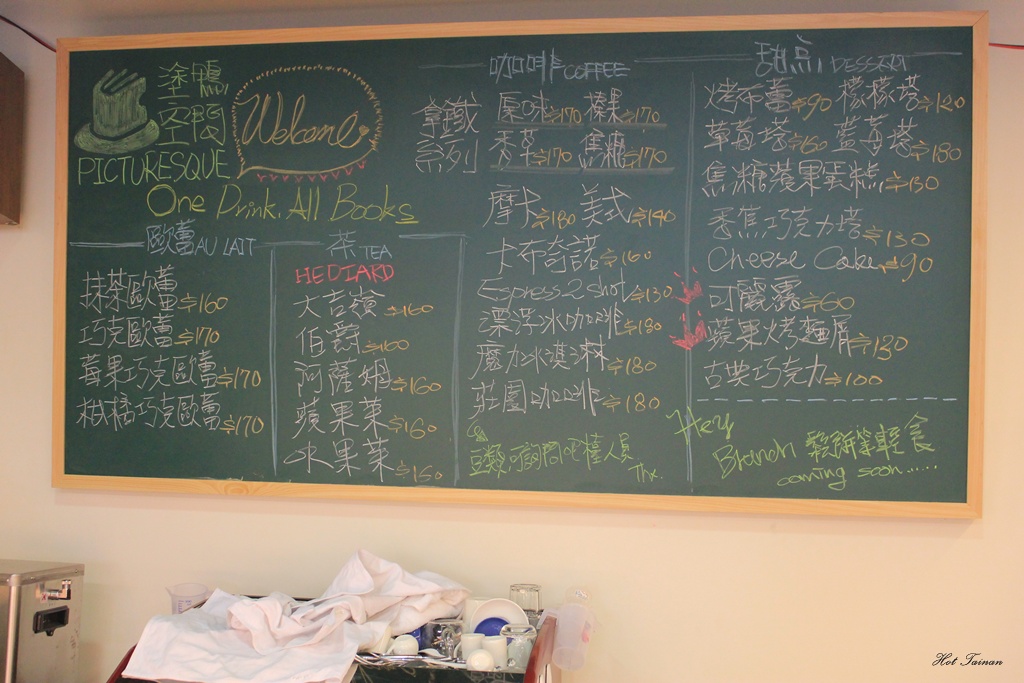 塗鴉
空間
PICTURESQUE
Welcome
One Drink, All Books
歐蕾 AU LAIT
抹茶歐蕾 160
巧克歐蕾 170
莓果巧克歐蕾 170
柑橘巧克歐蕾 170
茶 TEA
HEDIARD
大吉嶺 160
伯爵 160
阿薩姆 160
蘋果茶 160
水果茶 160
咖啡 COFFEE
拿鐵系列
原味 170 榛果 170
香草 170 焦糖 170
摩卡 180 美式 140
卡布奇諾 160
Espress-2 shot 130
漂浮冰咖啡 180
魔力冰淇淋 180
莊園咖啡 180
豆類可詢問吧檯人員
Thx.
甜点 DESSERT
烤布蕾 90 檸檬塔 120
草莓塔 160 藍莓塔 180
焦糖蘋果蛋糕 130
香蕉巧克力塔 130
Cheese Cake 90
可麗露 60
蘋果烤麵屑 130
古典巧克力 100
Hey
Brunch 鬆餅業輕食
coming soon......
Hot Tainan